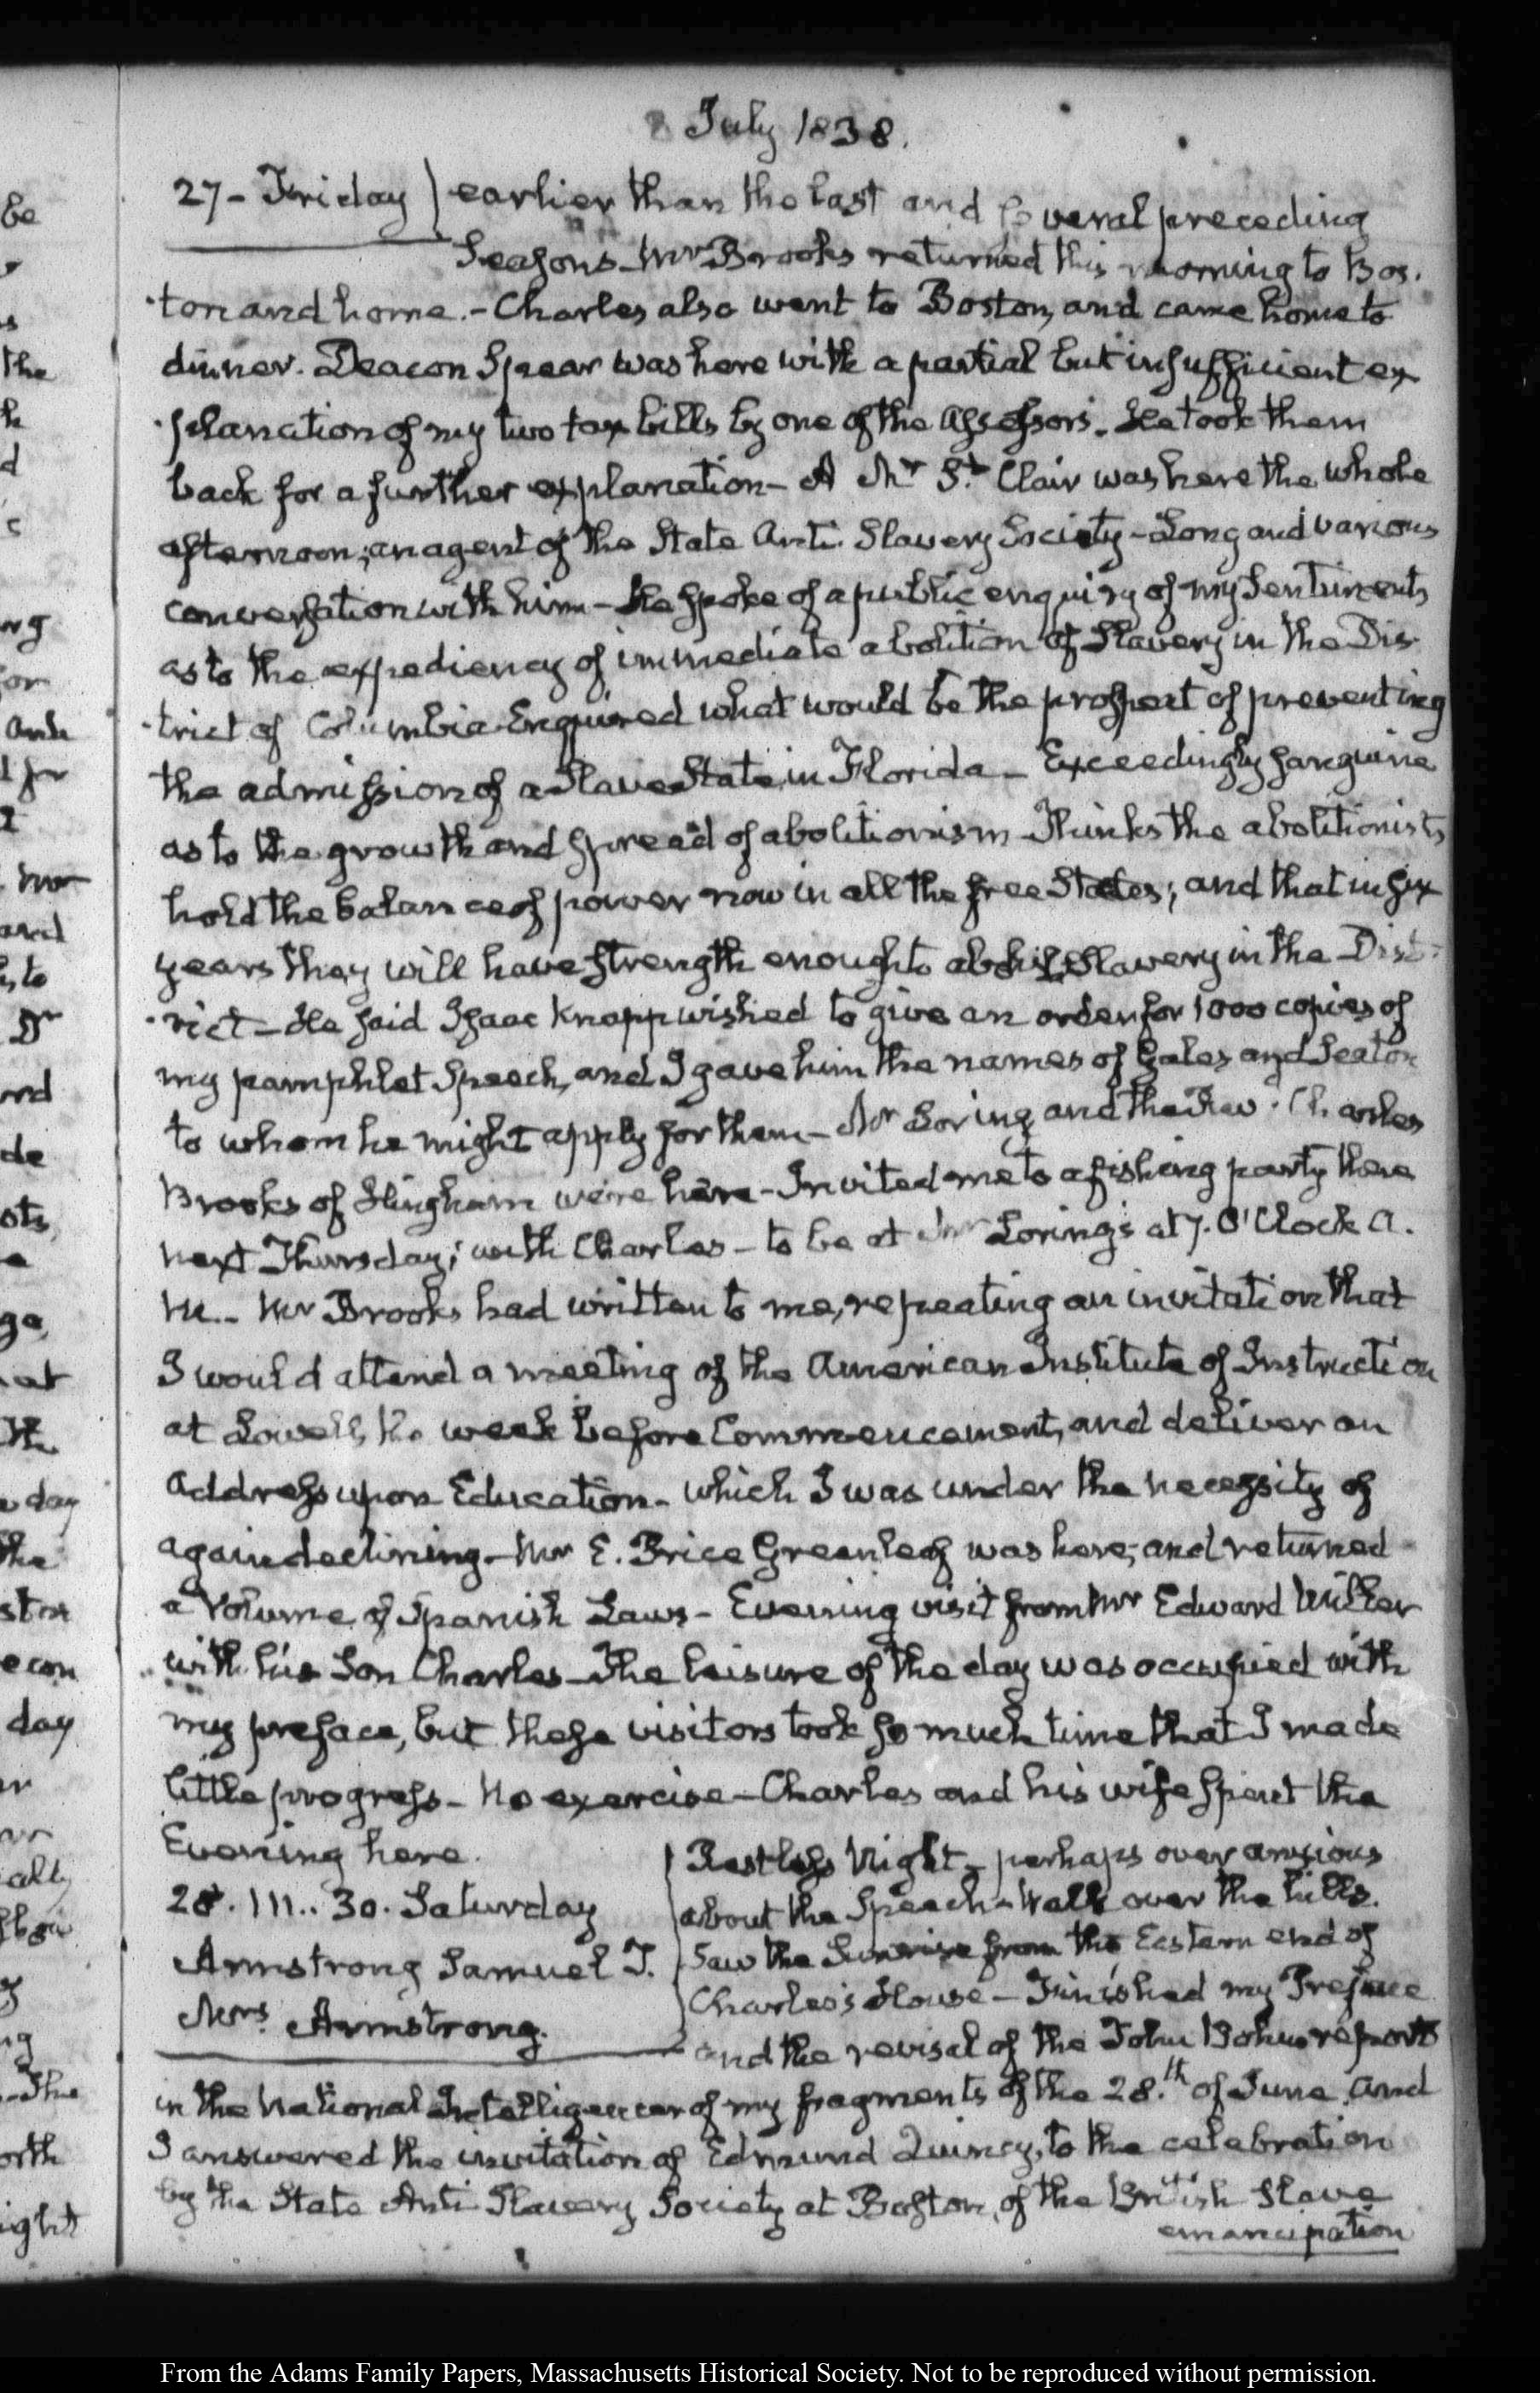 July 1838.
27 - Friday) earlier than the last and several preceding
Seasons - Mr Brooks returned this morning to Bos.
ton and home. - Charles also went to Boston, and came home to
dinner. Deacon Spear was here with a partial but insufficient ex
planation of my two tax bills by one of the Assessors. He took them
back for a further explanation - A Mr St. Clair was here the whole
afternoon; an agent of the State Anti Slavery Society - Long and various
conversation with him - He spoke of a public enquiry of my Sentiments
as to the expediency of immediate abolition of Slavery in the Dis
trict of Columbia - Enquired what would be the prospect of preventing
the admission of a Slave State in Florida - Exceedingly sanguine
as to the growth and spread of abolitionism - Thinks the abolitionists
hold the balance of power now in all the free States; and that in six
years they will have strength enough to abolish Slavery in the Dist
rict - He said Isaac Knapp wished to give an order for 1000 copies of
my pamphlet Speech, and I gave him the names of Gales and Seaton
to whom he might apply for them - Mr Loring and the Rev. Charles
Brooks of Hingham were here - Invited me to a fishing party there
next Thursday; with Charles - to be at Mr Loring's at 7. O'Clock A.
M. - Mr Brooks had written to me, repeating an invitation that
I would attend a meeting of the American Institute of Instruction
at Lowell, the week before Commencement, and deliver an
Address upon Education - which I was under the necessity of
again declining - Mr E. Price Greenleaf was here; and returned
a Volume of Spanish Laws - Evening visit from Mr Edward Miller
with his Son Charles - The leisure of the day was occupied with
my preface, but these visitors took so much time that I made
little progress - No exercise - Charles and his wife spent the
Evening here.
28. III.. 30. Saturday
Armstrong Samuel T.
Mrs. Armstrong.
Restless Night - perhaps over anxious
about the Speech - Walk over the hills.
Saw the Sunrise from the Eastern end of
Charles's House - Finished my Preface
and the revisal of the John Bohun reports
in the National Intelligencer of my fragments of the 28.th of June. And
I answered the invitation of Edmund Quincy, to the celebration
by the State Anti Slavery Society at Boston, of the British Slave
emancipation
be
the
h
d
s
ng
or
and
ots
ga
at
the
day
the
ston
econ
day
ally
ng
The
orth
ight
From the Adams Family Papers, Massachusetts Historical Society. Not to be reproduced without permission.